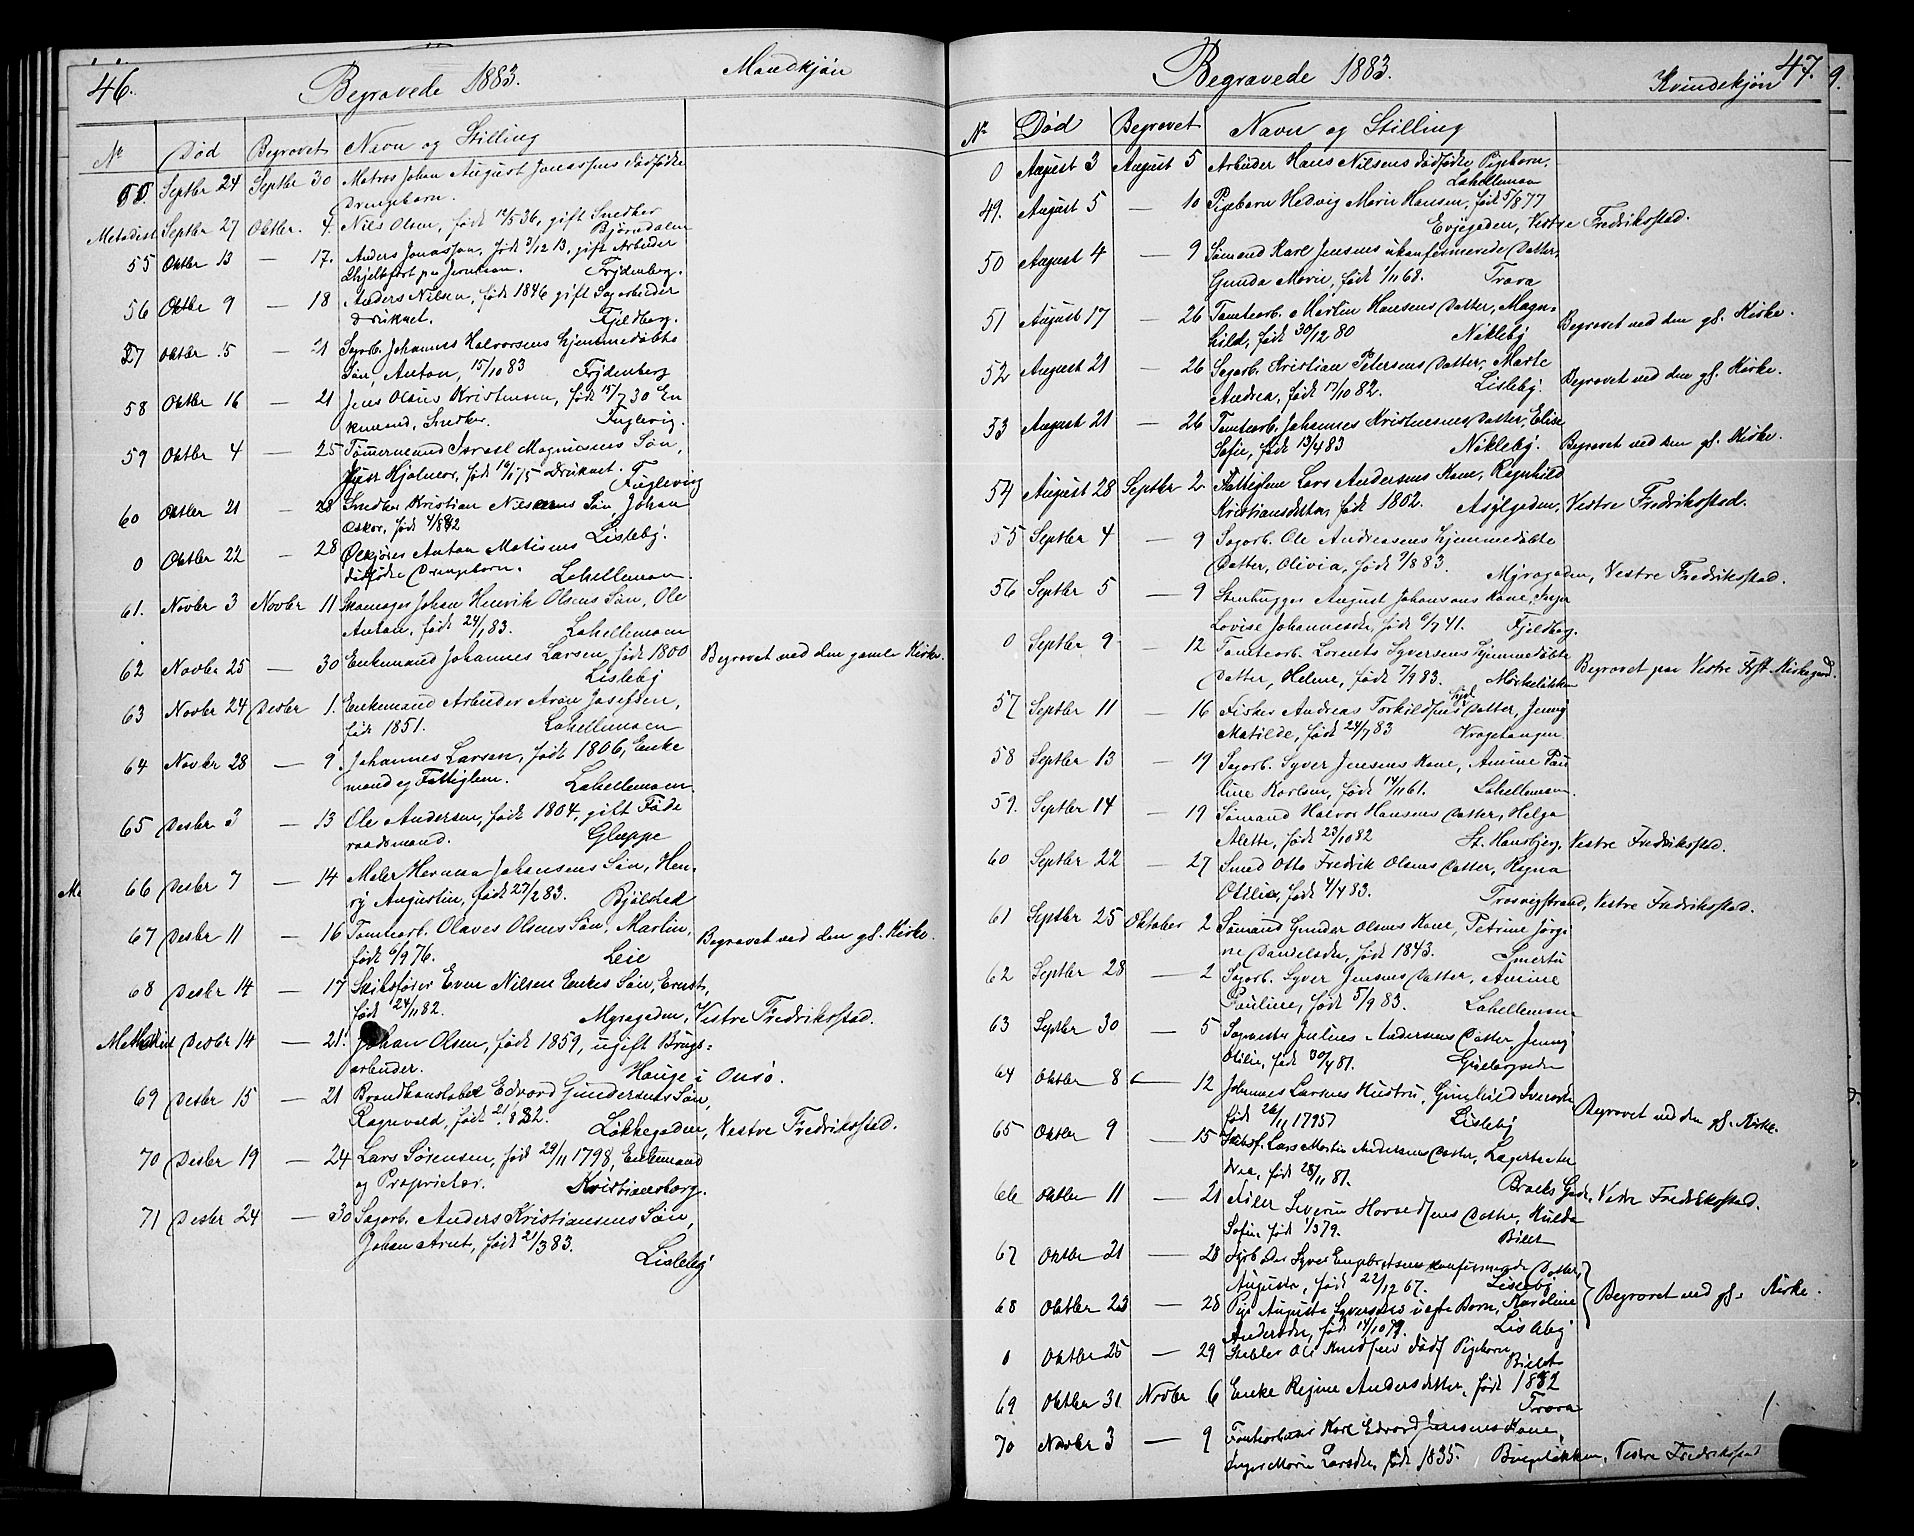 46.
Begravede 1883.
Mandkjøn
Nr
Død
Begravet
Navn og Stilling
Septbr 24 Septbr 30 Matros Johan August Jonassens dødfødte
Drengebarn.
Metodist Septbr 27 Oktbr. 4 Nils Olsen, født 36, gift Snedker
Bjørndalen
55 Oktbr 13 — 17. Anders Jonassen, født 3/12 13, gift Arbeider
Frydenberg.
56 Oktbr 9 — 18 Anders Nilsen, født 1846 gift Sagarbeider
Druknet. Fjeldberg.
57 Oktbr 5 — 21 Sagarb. Johannes Halvorsens hjemmedøbte
Søn, Anton, 15/10 83 Frydenberg
58 Oktbr 16 — 21 Jens Olaus Kristensen, født 15/7 30 En
kemand, Snedker. Fuglevig.
59 Oktbr 4 — 25 Tømmermand Israel Magnusens Søn,
Hjalmar, født Druknet. Fuglevig
60 Oktbr 21 — 28 Snedker Kristian Nilsens Søn, Johan
Oskar, født Lisleby.
0 Oktbr 22 — 28 Anton Matisens
dødfødte Drengebarn. Lahellemoen.
61. Novbr 3 Novbr 11 Skomager Johan Henrik Olsens Søn, Ole
Anton, født 24/1 83. Lahellemoen
62 Novbr 25 — 30 Enkemand Johannes Larsen, født 1800 Begravet ved den gamle Kirke.
Lisleby
63 Novbr 24 Desbr 1. Enkemand Arbeider Aron Josefsen,
født 1851. Lahellemoen
64 Novbr 28 — 9. Johannes Larsen, født 1806, Enke
mand og Fattiglem. Lahellemoen
65 Desbr 3 — 13 Ole Andersen, født 1804, gift Føde
raadsmand. Gluppe
66 Desbr 7 — 14 Maler Herman Johansens Søn, Hen-
ry Augustin, født 27/2 83. Bjølstad
67 Desbr 11 — 16 Tomtearb. Olaves Olsens Søn, Martin, Begravet ved den gl. Kirke.
født 6/9 76. Leie
68 Desbr 14 — 17 Skibsfører Even Nilsens Enkes Søn, Ernst,
født 24/11 82. Myragaden, Vestre Fredriksstad.
Metodist Desbr 14 — 21. Johan Olsen, født 1859, ugift Brugs-
arbeider. Hauge i Onsø.
69 Desbr 15 — 21 Brandkonstabel Edvard Gundersens Søn,
Ragnvald, født 82. Løkkegaden, Vestre Fredriksstad.
70 Desbr 19 — 24 Lars Sørensen, født 29/11 1798, Enkemand
og Proprietær. Kristiansborg.
71 Desbr 24 — 30 Sagarb. Anders Kristiansens Søn,
Johan Arnt, født 21/3 83.
Lisleby
47.
Begravede 1883.
Kvindekjøn
Nr
Død
Begravet
Navn og Stilling
0 August 3 August 5 Arbeider Hans Nilsens dødfødte Pigebarn.
Lahellemoen
49. August 5 — 10 Pigebarn Hedvig Marie Hansen, født 5/8 77
Evjegaden, Vestre Fredriksstad.
50 August 4 — 9 Sømand Karl Jensens ukonfirmerede Datter,
Gunda Marie, født 1/11 68. Trara
51 August 17 — 26 Tomtearb. Martin Hansens Datter, Magn-
hild, født 30/12 80 Nokleby Begravet ved den gl. Kirke.
52 August 21 — 26 Sagarb. Kristian Petersens Datter, Marte
Andrea, født 17/10 82. Lisleby Begravet ved den gl. Kirke.
53 August 21 — 26 Tomtearb. Johannes Kristensens Datter, Elise
Sofie, født 13/4 83 Nokleby. Begravet ved den gl. Kirke.
54 August 28 Septbr 2 Fattiglem Lars Andersens Kone, Ragnhild
Kristiansdatter, født 1802. Asylgaden, Vestre Fredriksstad.
55 Septbr 4 — 9 Sagarb. Ole Andreasens hjemmedøbte
Datter, Olivia, født 9/8 83. Myragaden, Vestre Fredriksstad.
56 Septbr 5 — 9 Stenhugger August Johansens Kone, Inga
Lovise Johannesdtr, født 6/7 41. Fjeldberg.
0 Septbr 9 — 12 Tomtearb. Lorents Syversens hjemmedøbte
Datter, Helene, født 7/9 83. Mørkeløkken Begravet paa Vestre Fst. Kirkegaard.
57 Septbr 11 — 16 Fisker Andreas Torkildsens Datter, Jenny
Matilde, født 24/7 83 Kragetangen
58 Septbr 13 — 19 Sagarb. Syver Jensens Kone, Amine Pau
line Karlsen, født 14/11 61. Lahellemoen.
59. Septbr 14 — 19 Sømand Halvor Hansens Datter, Helga
Alette, født 23/10 82 St. Hansbjerg, Vestre Fredriksstad.
60 Septbr 22 — 27 Smed Otto Fredrik Olsens Datter, Ragna
Otilia, født 4/4 83. Trosvigstrand, Vestre Fredriksstad.
61 Septbr 25 Oktober 2 Sømand Gunder Olsens Kone, Petrine Jørgi
ne Danielsdtr, født 1843. Smertu
62 Septbr 28 — 2 Sagarb. Syver Jensens Datter, Amine
Pauline, født 5/9 83. Lahellemoen
63 Septbr 30 — 5 Sagmester Julius Andersens Datter, Jenny
Otilie, født 30/4 81.
64 Oktbr 8 — 12 Johannes Larsens Hustru, Gunhild Iversdtr
født 26/11 1795 Lisleby Begravet ved den gl. Kirke.
65 Oktbr 9 — 15 Skibsf. Lars Martin Andersens Datter, Lagerta An
drea, født 28/11 81. Brochs Gade, Vestre Fredriksstad.
66 Oktbr 11 — 21 Severin Datter, Hulda
Sofie født 1/3 79. Bilet
67 Oktbr 21 — 28 Syver Engebretsens konfirmerede Datter,
Augusta, født 22/12 67. Lisleby
68 Oktbr 23 — 28 Pige Augusta Syversens uægte Barn, Karoline Begravet ved gl. Kirke.
Andersdtr, født 14/10 79. Lisleby
0 Oktbr 25 — 29 Ole Knudsens dødf. Pigebarn
Bilet
69 Oktbr 31 Novbr 6 Enke Regine Andersdatter, født 1832
Trara
70 Novbr 3 — 9 Tomtearbeider Karl Edvard Jensens Kone,
Inger Marie Larsdtr, født 1835. Vestre Fredriksstad